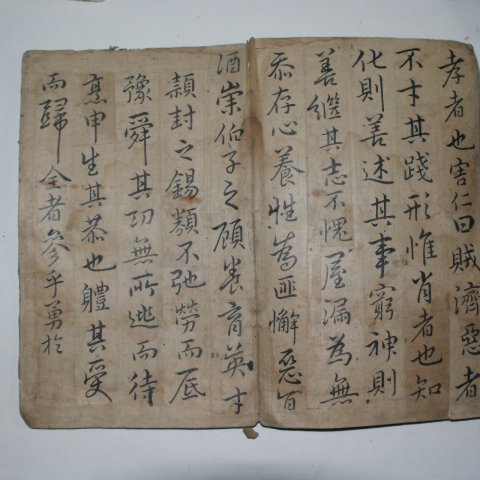 孝者也害仁曰賊濟惡者
不才其踐形惟肖者也知
化則善述其事窮神則
善繼其志不愧屋漏為無
忝存心養性為匪懈惡旨
酒崇伯子之顧養育英才
穎封之錫類不弛勞而底
豫舜其功無所逃而待
烹申生其恭也體其受
而歸全者參乎勇於